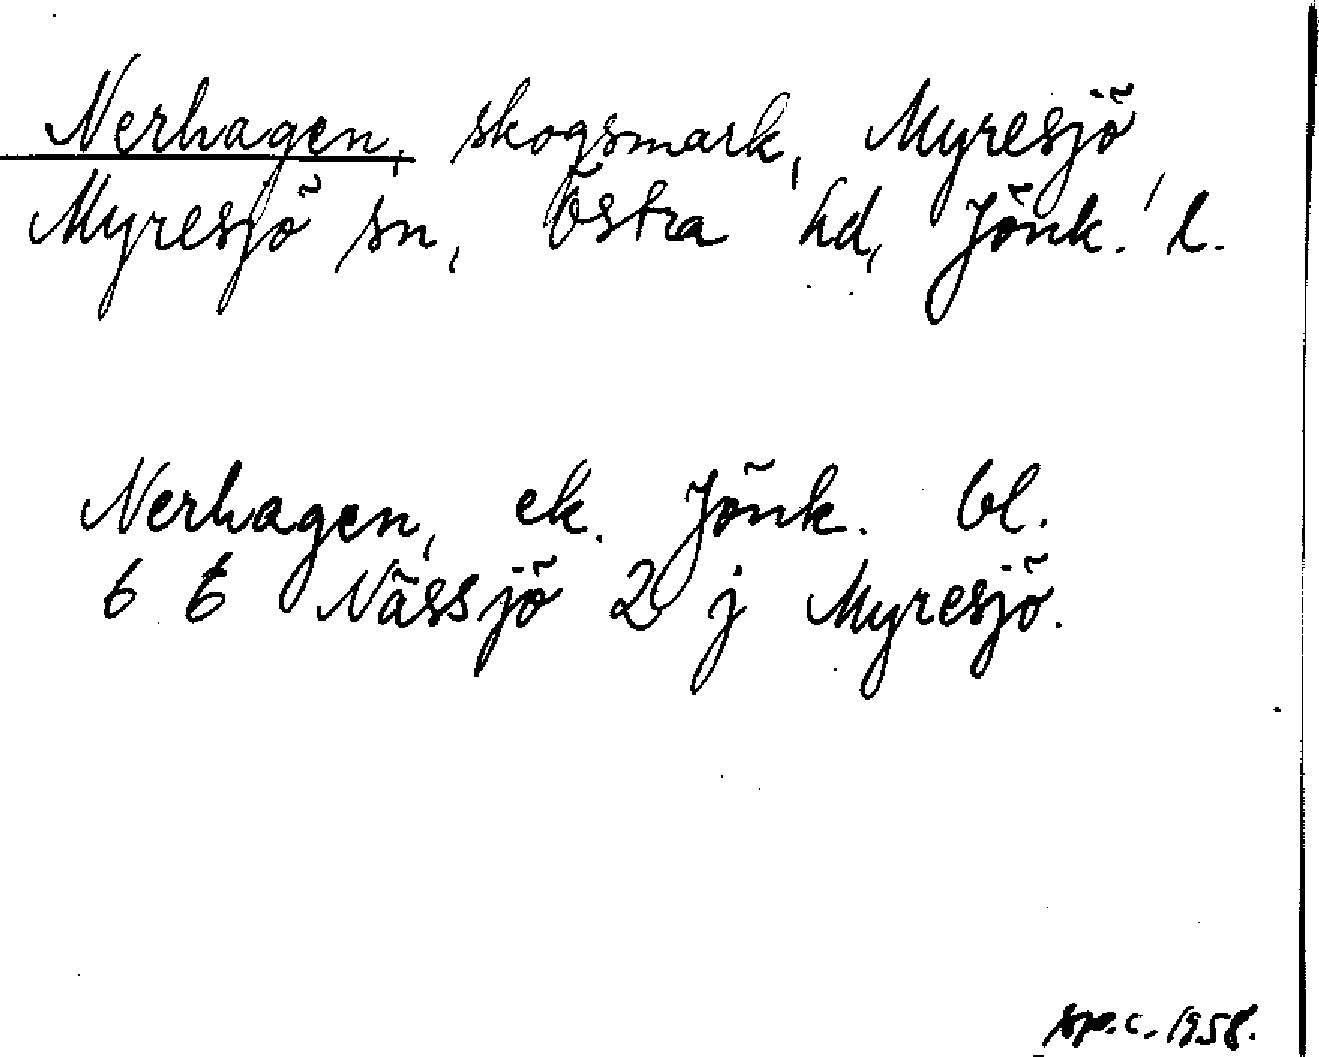 Nerhagen, skogsmark, Myresjö
Myresjö sn, Östra hd, Jönk. l.
Nerhagen, ek. Jönk. bl.
6 E Nässjö 2 j Myresjö.
sp.c. 1958.